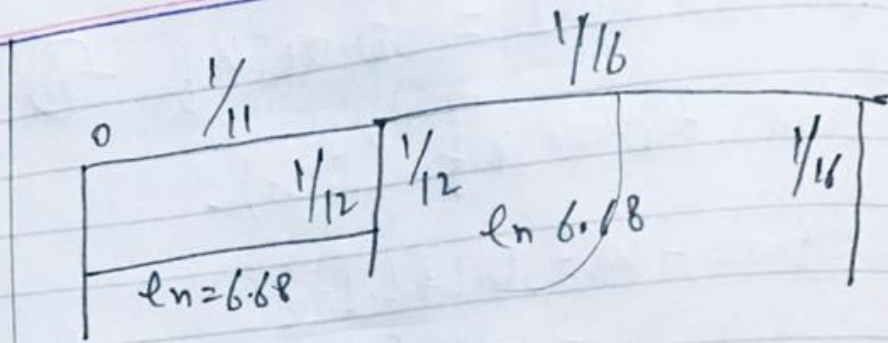 0 1/11 1/16
1/12 1/12 1/16
ln=6.68 ln 6.68